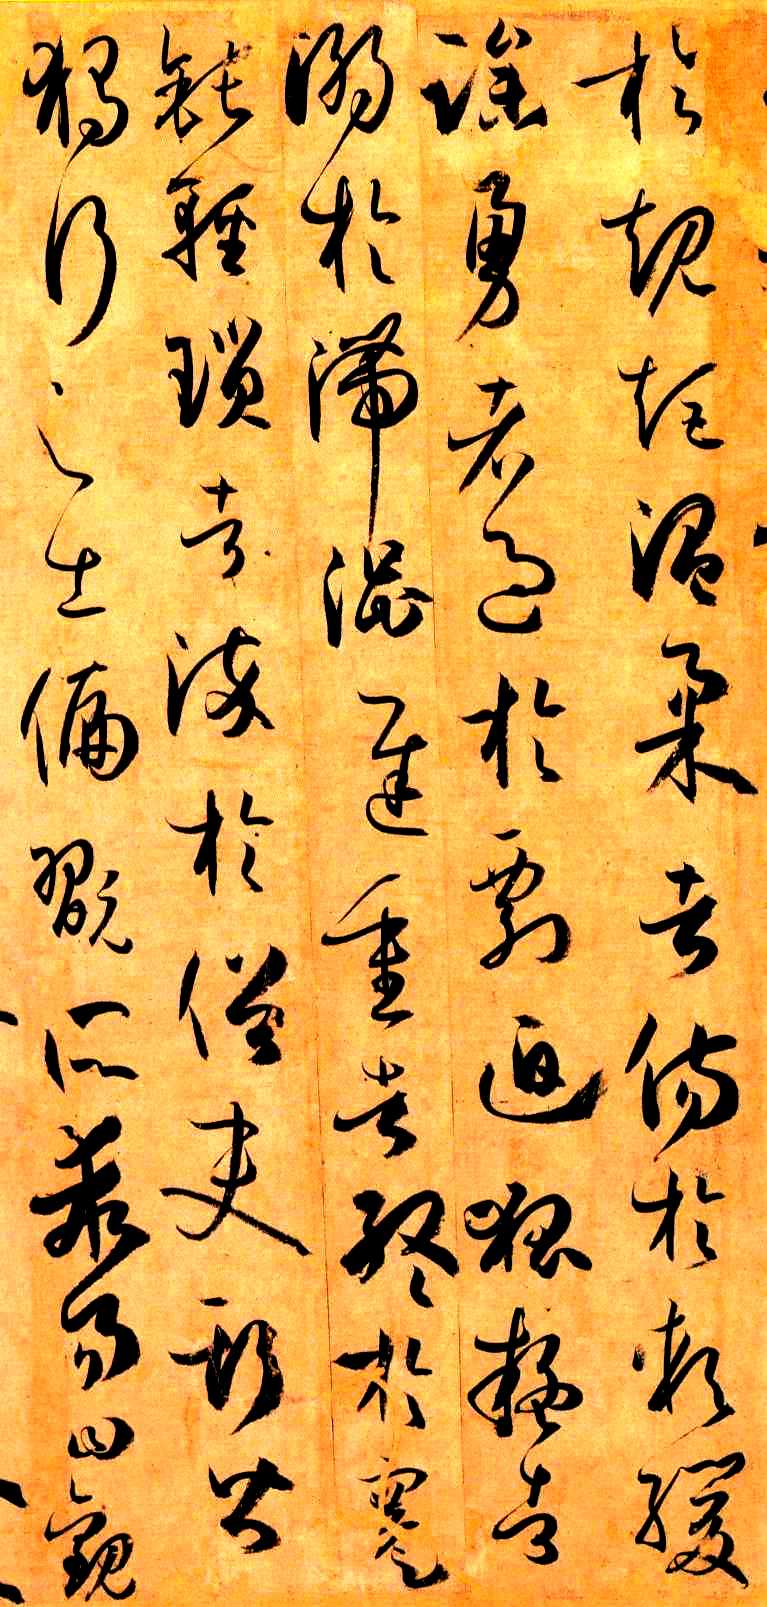 於規矩温柔者傷於軟緩
躁勇者過於剽迫狐疑者
溺於滯澀遲重者終於蹇
鈍輕瑣者染於俗吏斯皆
獨行之士偏翫所乖易曰觀